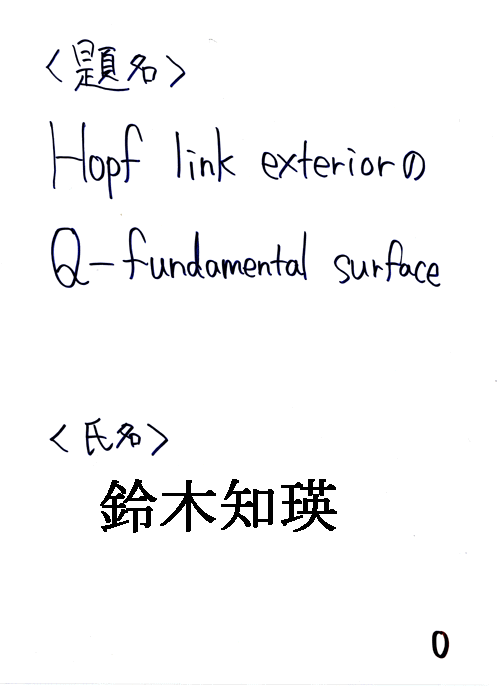 <題名>
Hopf link exteriorの
Q-fundamental surface
<氏名>
鈴木知瑛
0